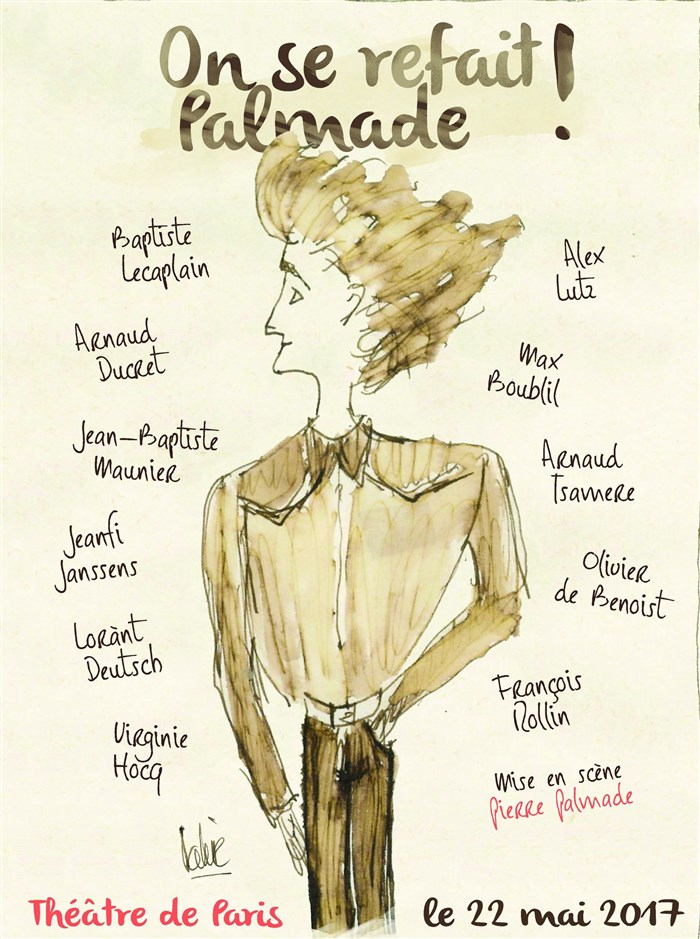 On se refait !
Palmade
Baptiste
Lecaplain
Arnaud
Ducret
Jean-Baptiste
Maunier
Jeanfi
Janssens
Lorànt
Deutsch
Virginie
Hocq
Alex
Lutz
Max
Boublil
Arnaud
Tsamere
Olivier
de Benoist
François
Rollin
Mise en scène
Pierre Palmade
Théâtre de Paris
le 22 mai 2017